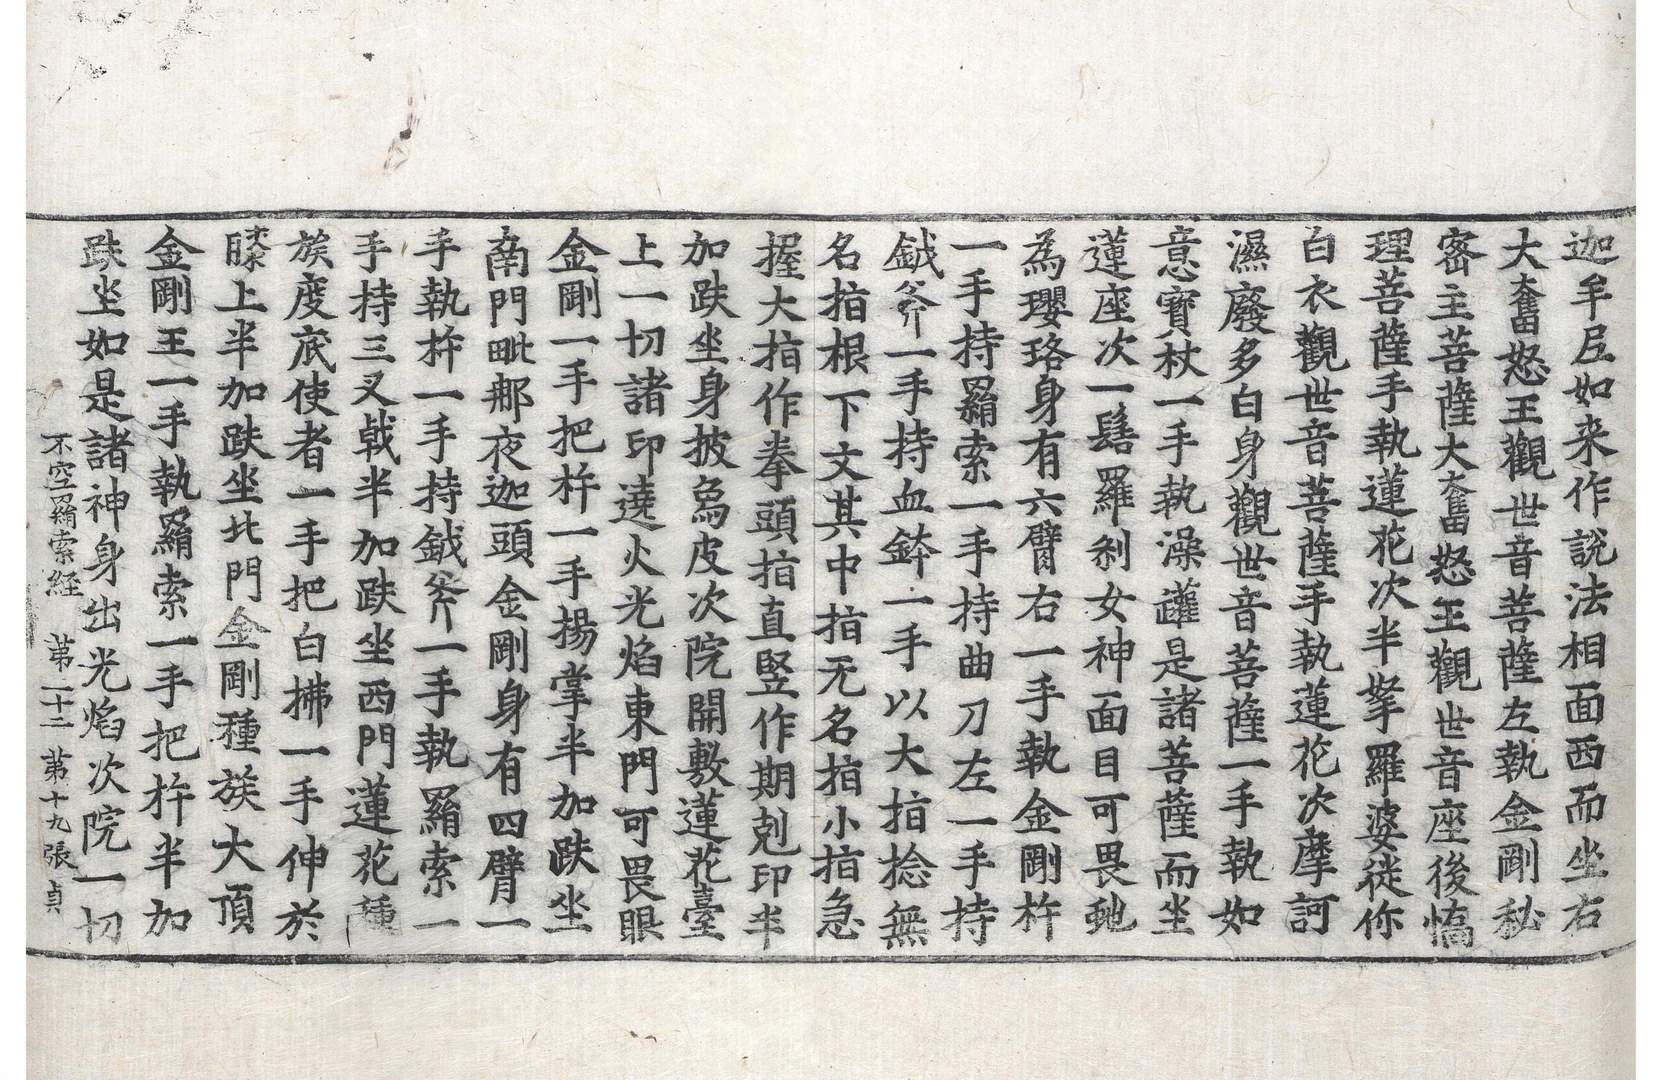 迦牟尼如来作說法相面西而坐右
大奮怒王觀世音菩薩左執金剛秘
密主菩薩大奮怒王觀世音座後憍
理菩薩手執蓮花次半拏羅婆徙你
白衣觀世音菩薩手執蓮花次摩訶
濕廢多白身觀世音菩薩一手執如
意寶杖一手執澡鑵是諸菩薩而坐
蓮座次一髻羅剎女神面目可畏虵
為瓔珞身有六臂右一手執金剛杵
一手持羂索一手持曲刀左一手持
鉞斧一手持血鉢一手以大指捻無
名指根下文其中指无名指小指急
握大指作拳頭指直竪作期剋印半
加趺坐身披烏皮次院開敷蓮花臺
上一切諸印遶火光焰東門可畏眼
金剛一手把杵一手揚掌半加趺坐
南門毗那夜迦頭金剛身有四臂一
手執杵一手持鉞斧一手執羂索一
手持三叉戟半加趺坐西門蓮花種
族度底使者一手把白拂一手伸於
膝上半加趺坐北門金剛種族大頂
金剛王一手執羂索一手把杵半加
趺坐如是諸神身出光焰次院一切
不空羂索経 苐二十二 苐十九張 貞